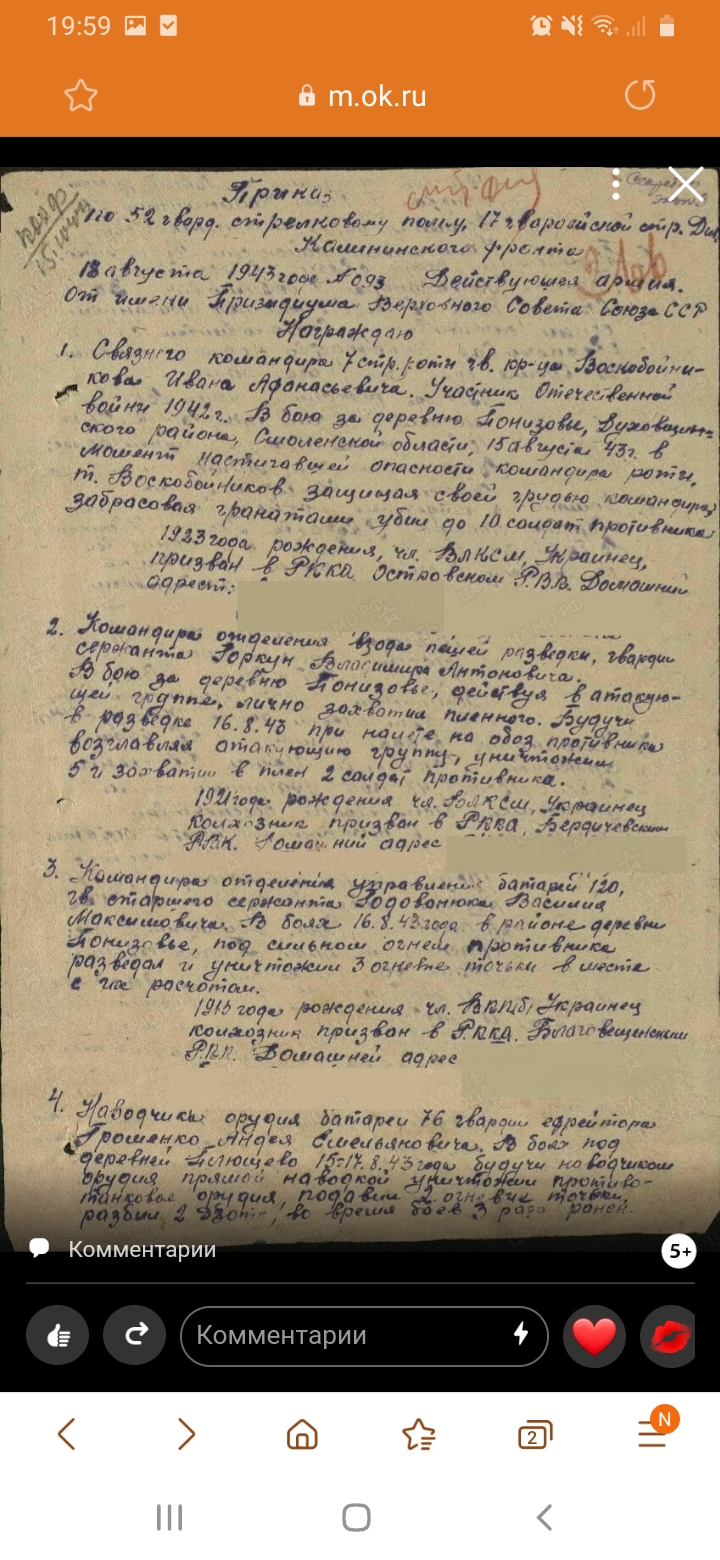 19:59
m.ok.ru
Приказ
По 52 гвард. стрелковому полку, 17 гвардейской стр. Див
Калининского фронта
18 августа 1943 года №093 Действующая армия.
От имени Призидиума Верховного Совета Союза ССР
Награждаю
1. Связного командира 7 стр. роты гв. кр-ца Воскобойни-
кова Ивана Афанасьевича. Участник Отечественной
войны 1942г. В бою за деревню Понизовье, Духовщин-
ского района, Смоленской области, 15 августа 43г. в
момент настигавшей опасности командира роты,
т. Воскобойников защищая своей грудью командира,
забрасовая гранатами убил до 10 солдат противника
1923 года рождения, чл. ВЛКСМ, Украинец,
призван в РККА Островском Р.В.К. Домашний
адрест:
2. Командира отделения взвода пешей разведки, гвардии
сержанта Горкун Владимира Антоновича.
В бою за деревню Понизовье, действуя в атакую-
щей группе, лично захватил пленного. Будучи
в разведке 16.8.43 при налете на обоз противника
возглавляя атакующию группу, уничтожил
5 и захватил в плен 2 солдат противника.
1921 года рождения чл. ВЛКСМ, Украинец
колхозник призван в РККА, Бердичевским
РВК. Домашний адрес
3. Командира отделения управления батареи 120,
гв. старшего сержанта Годованюка Василия
Максимовича. В боях 16.8.43 года в районе деревни
Понизовье, под сильном огнем противника
разведал и уничтожил 3 огневые точьки в месте
с их расчотом.
года рождения чл. ВКП(б) Украинец
колхозник призван в РККА. Благовещенским
РВК. Домашней адрес
4. Наводчика орудия батареи 76 гвардии ефрейтора
Грошенко Андея Емельяновича. В боях под
деревней 15-17.8.43 года будучи наводчиком
орудия прямой наводкой уничтожил противо-
танковое орудия, подавил 2 огневые точьки,
разбил 2 Дзота, во время боев 3 раза ранен.
Комментарии
5+
Комментарии
2
N